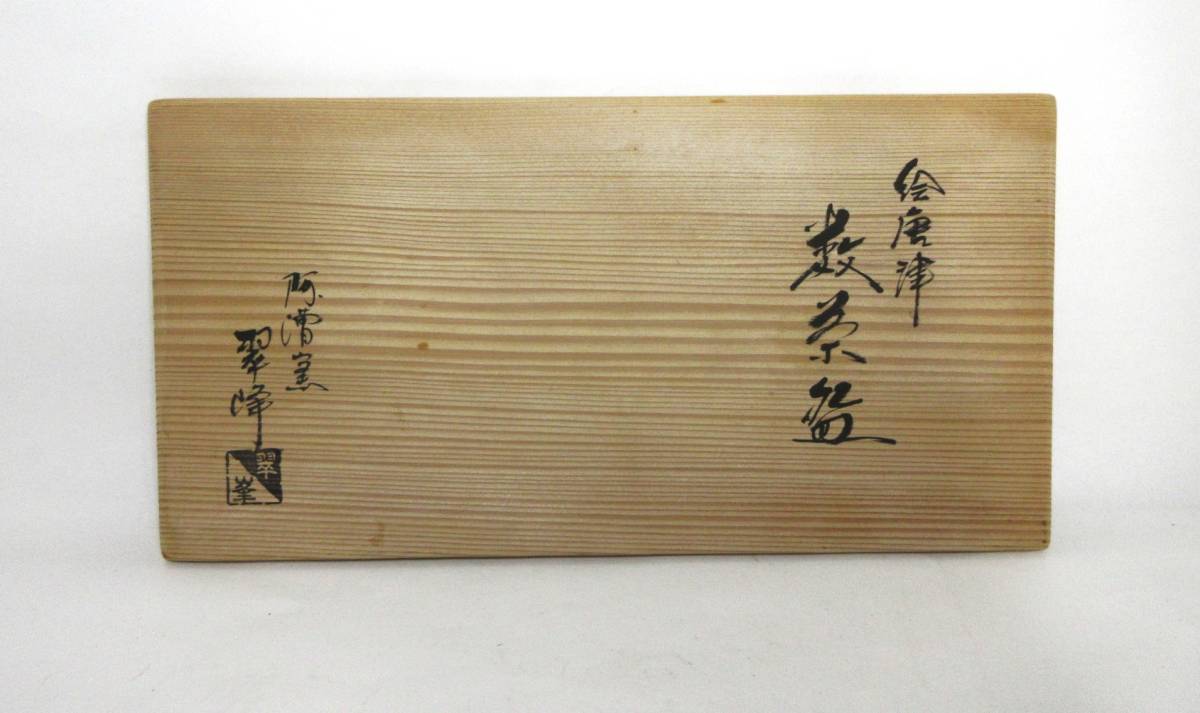 絵唐津
数茶盌
阿漕窯
翠峰
翠峯